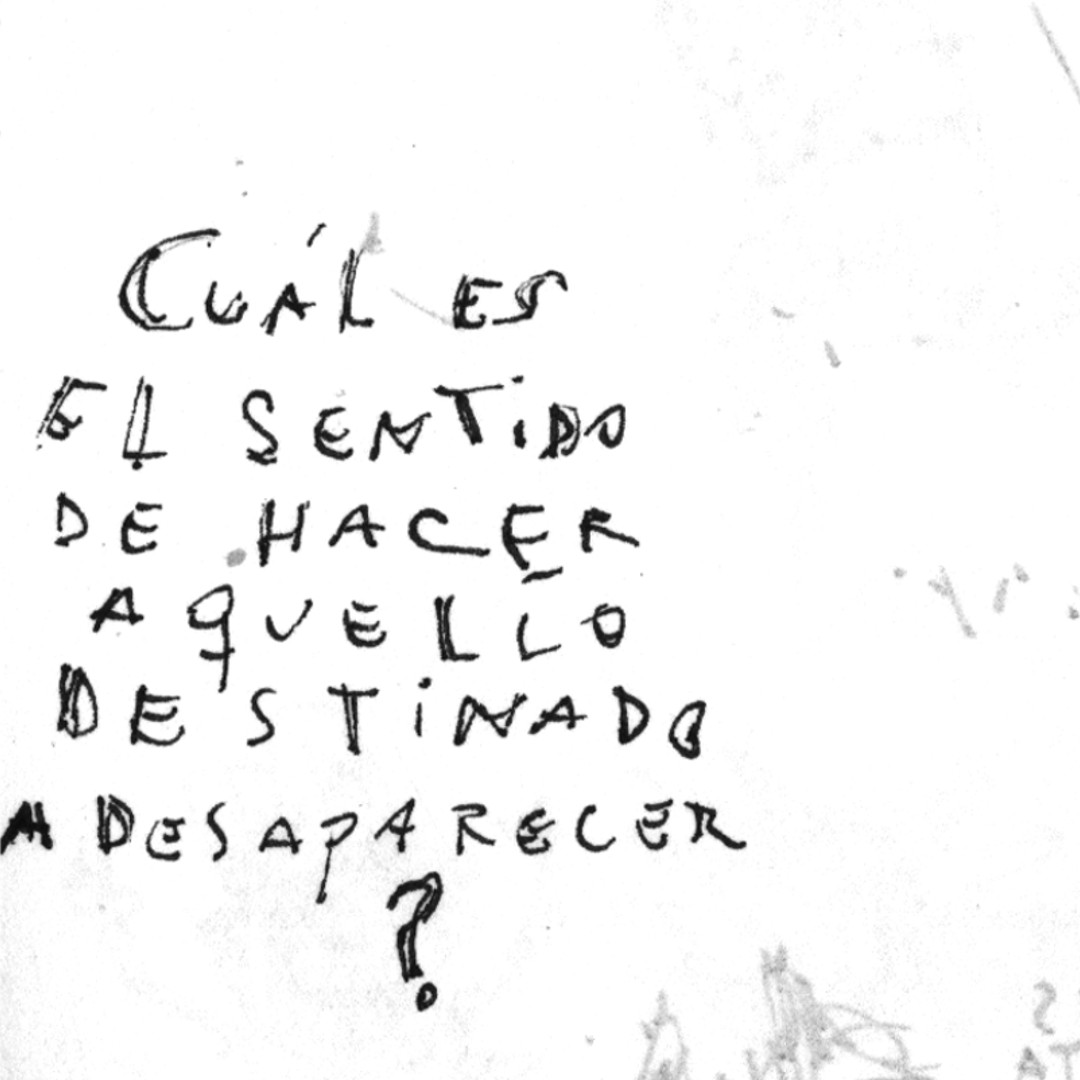 CUÁL ES
EL SENTIDO
DE HACER
AQUELLO
DESTINADO
A DESAPARECER
?